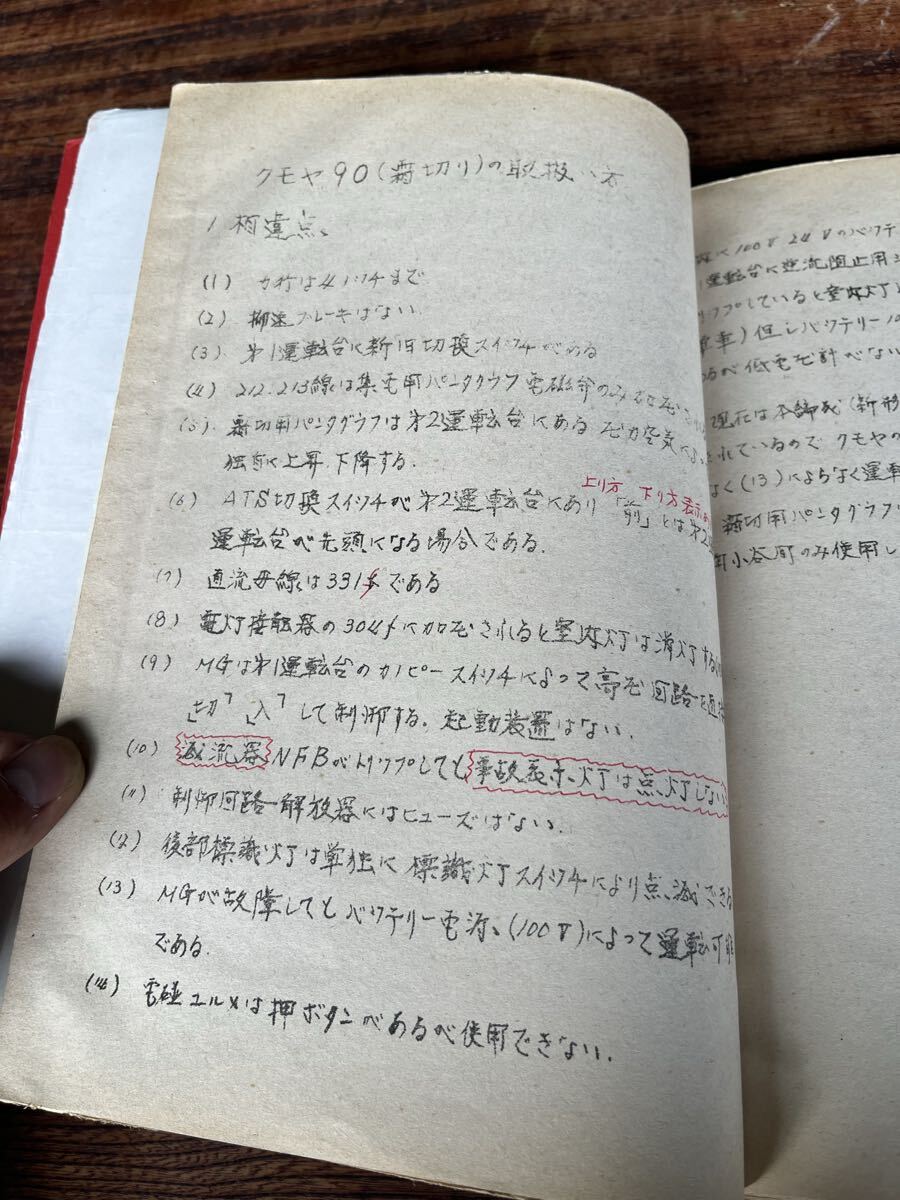 クモヤ90(霜切り)の取扱い方
1 相違点、
(1) 力行は4ノッチまで
(2) 抑速ブレーキはない
(3) 第1運転台に新旧切換スイッチがある
(4) 212.213線は集電用パンタグラフ電磁弁のみ
(5) 霜切用パンタグラフは第2運転台にある 元力空気によ
独自に上昇、下降する.
上り方 下り方表示
(6) ATS切換スイッチが第2運転台にあり「前」とは第2
運転台が先頭になる場合である.
(7) 直流母線は331fである
(8) 電灯接触器の304fに加圧されると室内灯は消灯する
(9) MGは第1運転台のカノピースイッチによって高圧回路を直接
「切」「入」して制御する. 起動装置はない.
(10) 減流器NFBがトリップしても事故表示灯は点灯しない
(11) 制御回路解放器にはヒューズはない.
(12) 後部標識灯は単独に標識灯スイッチにより点滅できる
(13) MGが故障してもバッテリー電源、(100V)によって運転可能
である.
(14) 電磁ユルメは押ボタンがあるが使用できない.
100V 24Vのバッテ
運転台に逆流阻止用
ップしていると室内灯
車)但しバッテリー10
るが低電圧計がない
現在は本編成(新形
れているので クモヤの
なく(13)によらなく運
霜切用パンタグラフ
小谷町のみ使用し